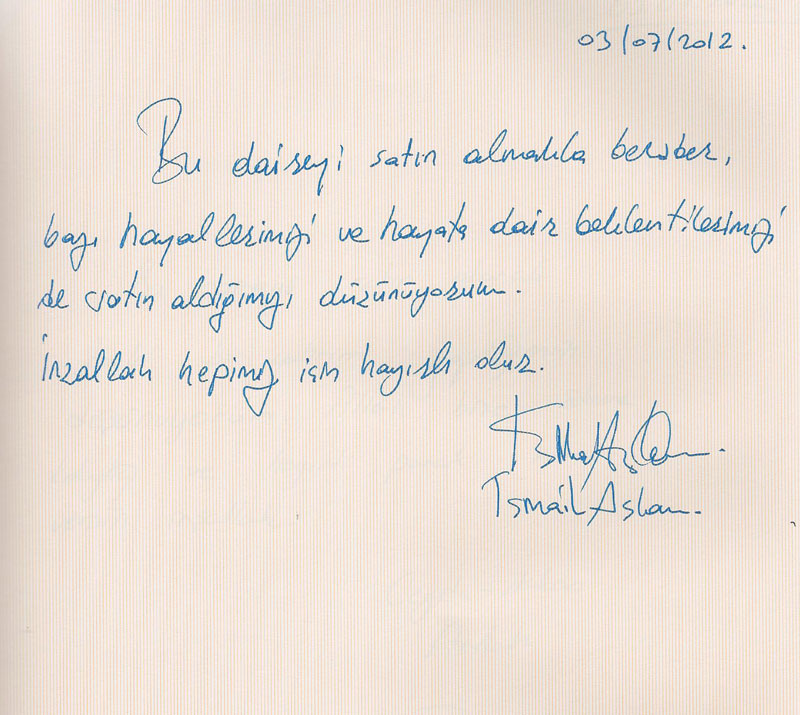 03/07/2012.
Bu daireyi satın almakla beraber,
bazı hayallerimizi ve hayata dair beklentilerimizi
de satın aldığımızı düşünüyorum.
İnşallah hepimiz için hayırlı olur.
İsmail Aslan.